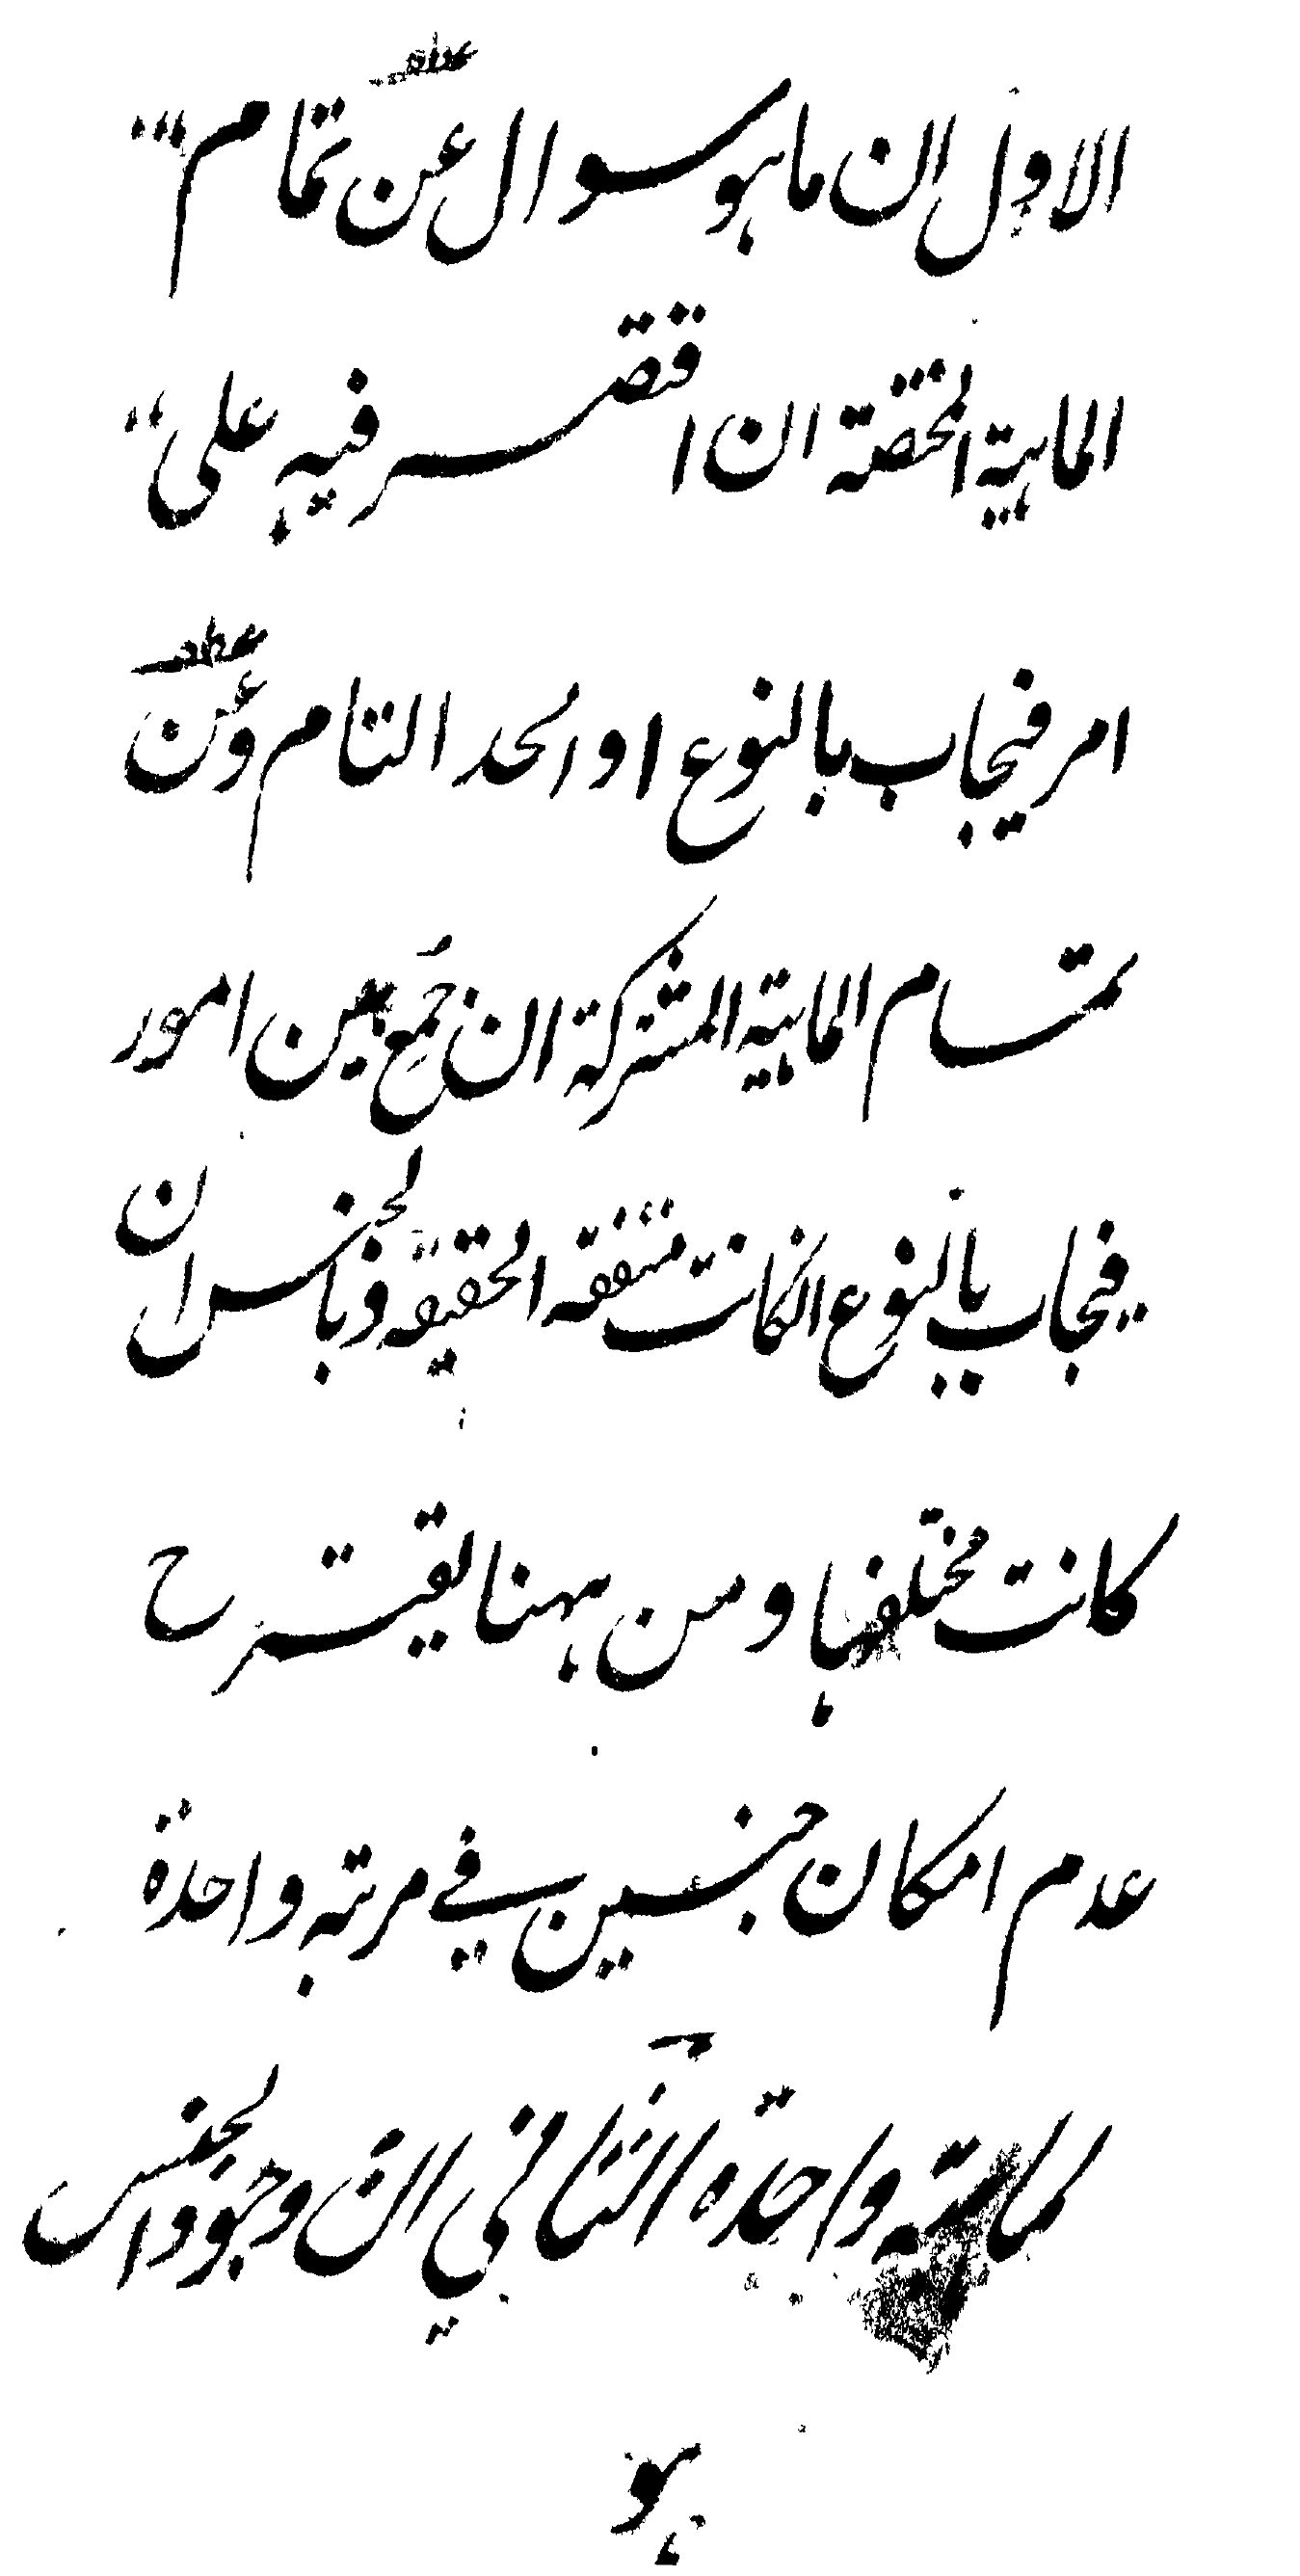 الاول ان ما هو سوال عن تمام
الماهية المختصة ان اقتصر فيه على
امر فيجاب بالنوع او الحد التام وعن
تمام الماهية المشتركة ان جمع بين امور
فيجاب بالنوع انكانت متفقة الحقيقة وبالجنس ان
كانت مختلفها ومن ههنا يقترح
عدم امكان جنسين في مرتبة واحدة
لماهية واحدة الثاني ان وجود الجنس
هو